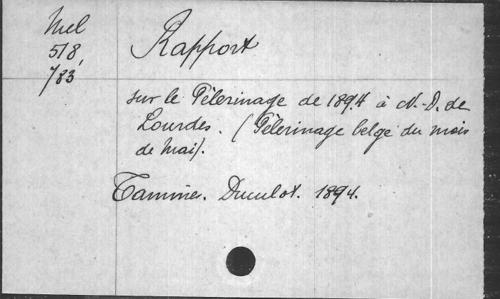 Mel
518,
783
Rapport
sur le Pèlerinage de 1894 à N.-D. de
Lourdes. (Pèlerinage belge du mois
de Mai).
Tamines. Duculot. 1894.